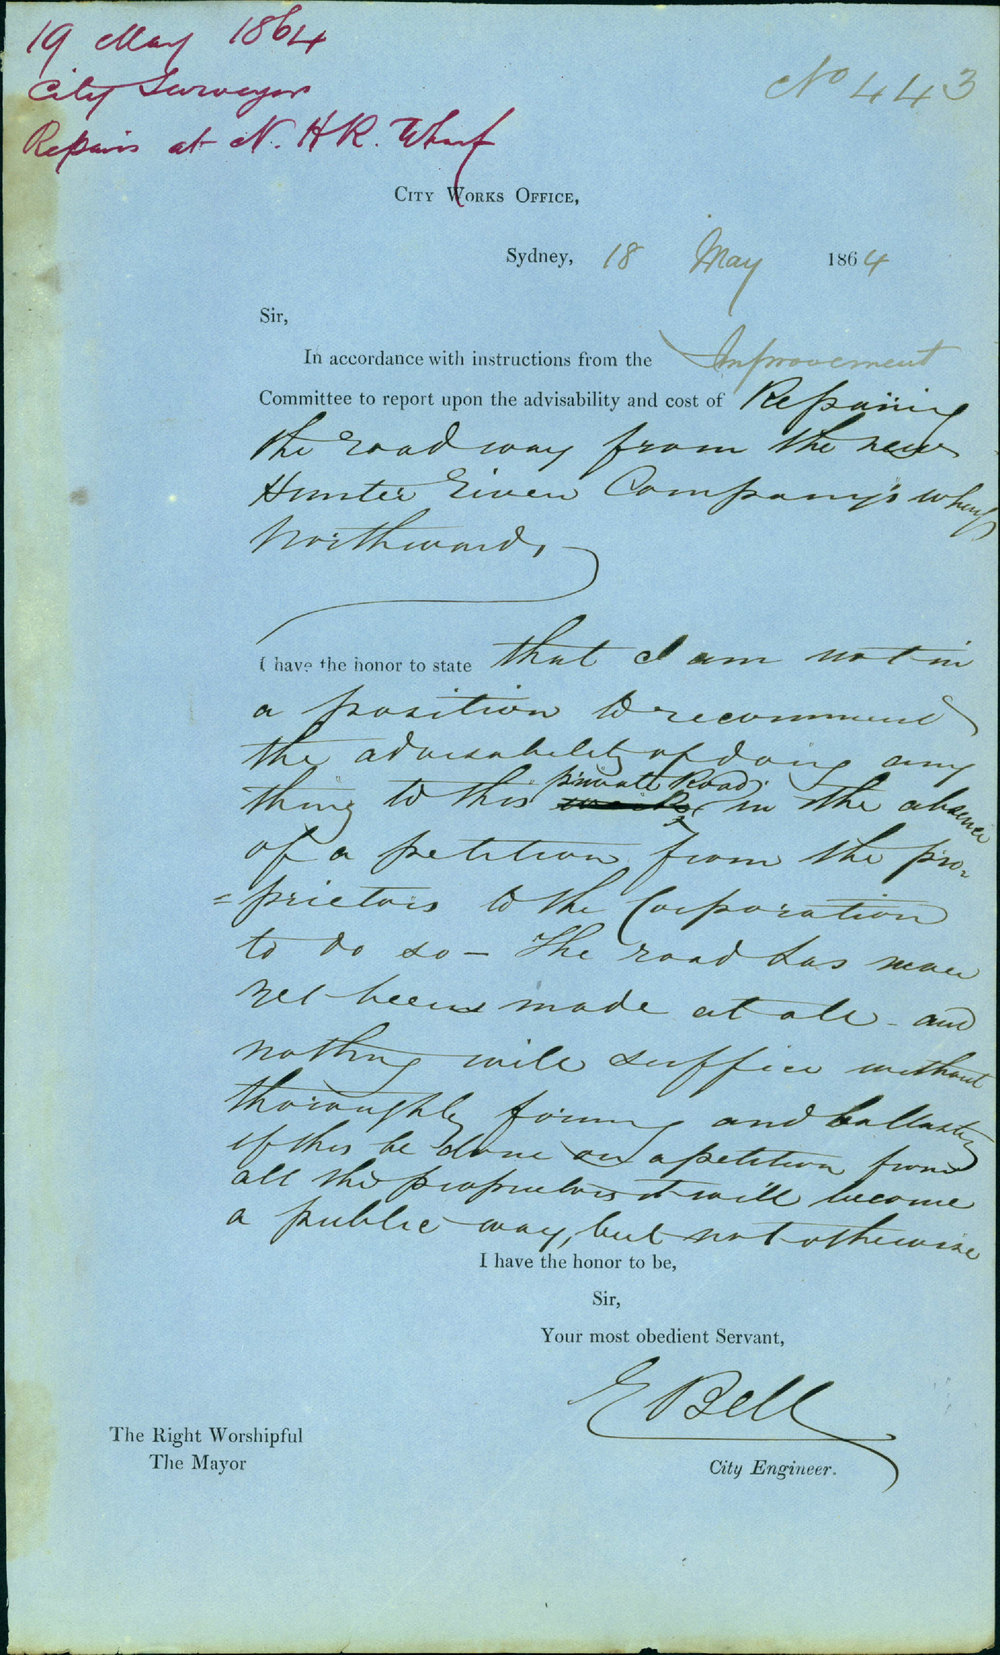 19 May 1864
City Surveyor
Repairs at N. H R. Wharf
No 443
City Works Office,
Sydney, 18 May 1864
Sir,
In accordance with instructions from the Improvement
Committee to report upon the advisability and cost of Repairing
the roadway from the new
Hunter River Company's wharf
Northwards,
I have the honor to state that I am not in
a position to recommend
the advisability of doing any
private Road
thing to this in the absence
of a petition from the pro=
=prietors to the Corporation
to do so — The road has never
yet been made at all - and
nothing will suffice without
thoroughly forming and ballasting
if this be done on a petition from
all the proprietors it will become
a public way, but not otherwise
I have the honor to be,
Sir,
Your most obedient Servant,
E Bell
City Engineer.
The Right Worshipful
The Mayor